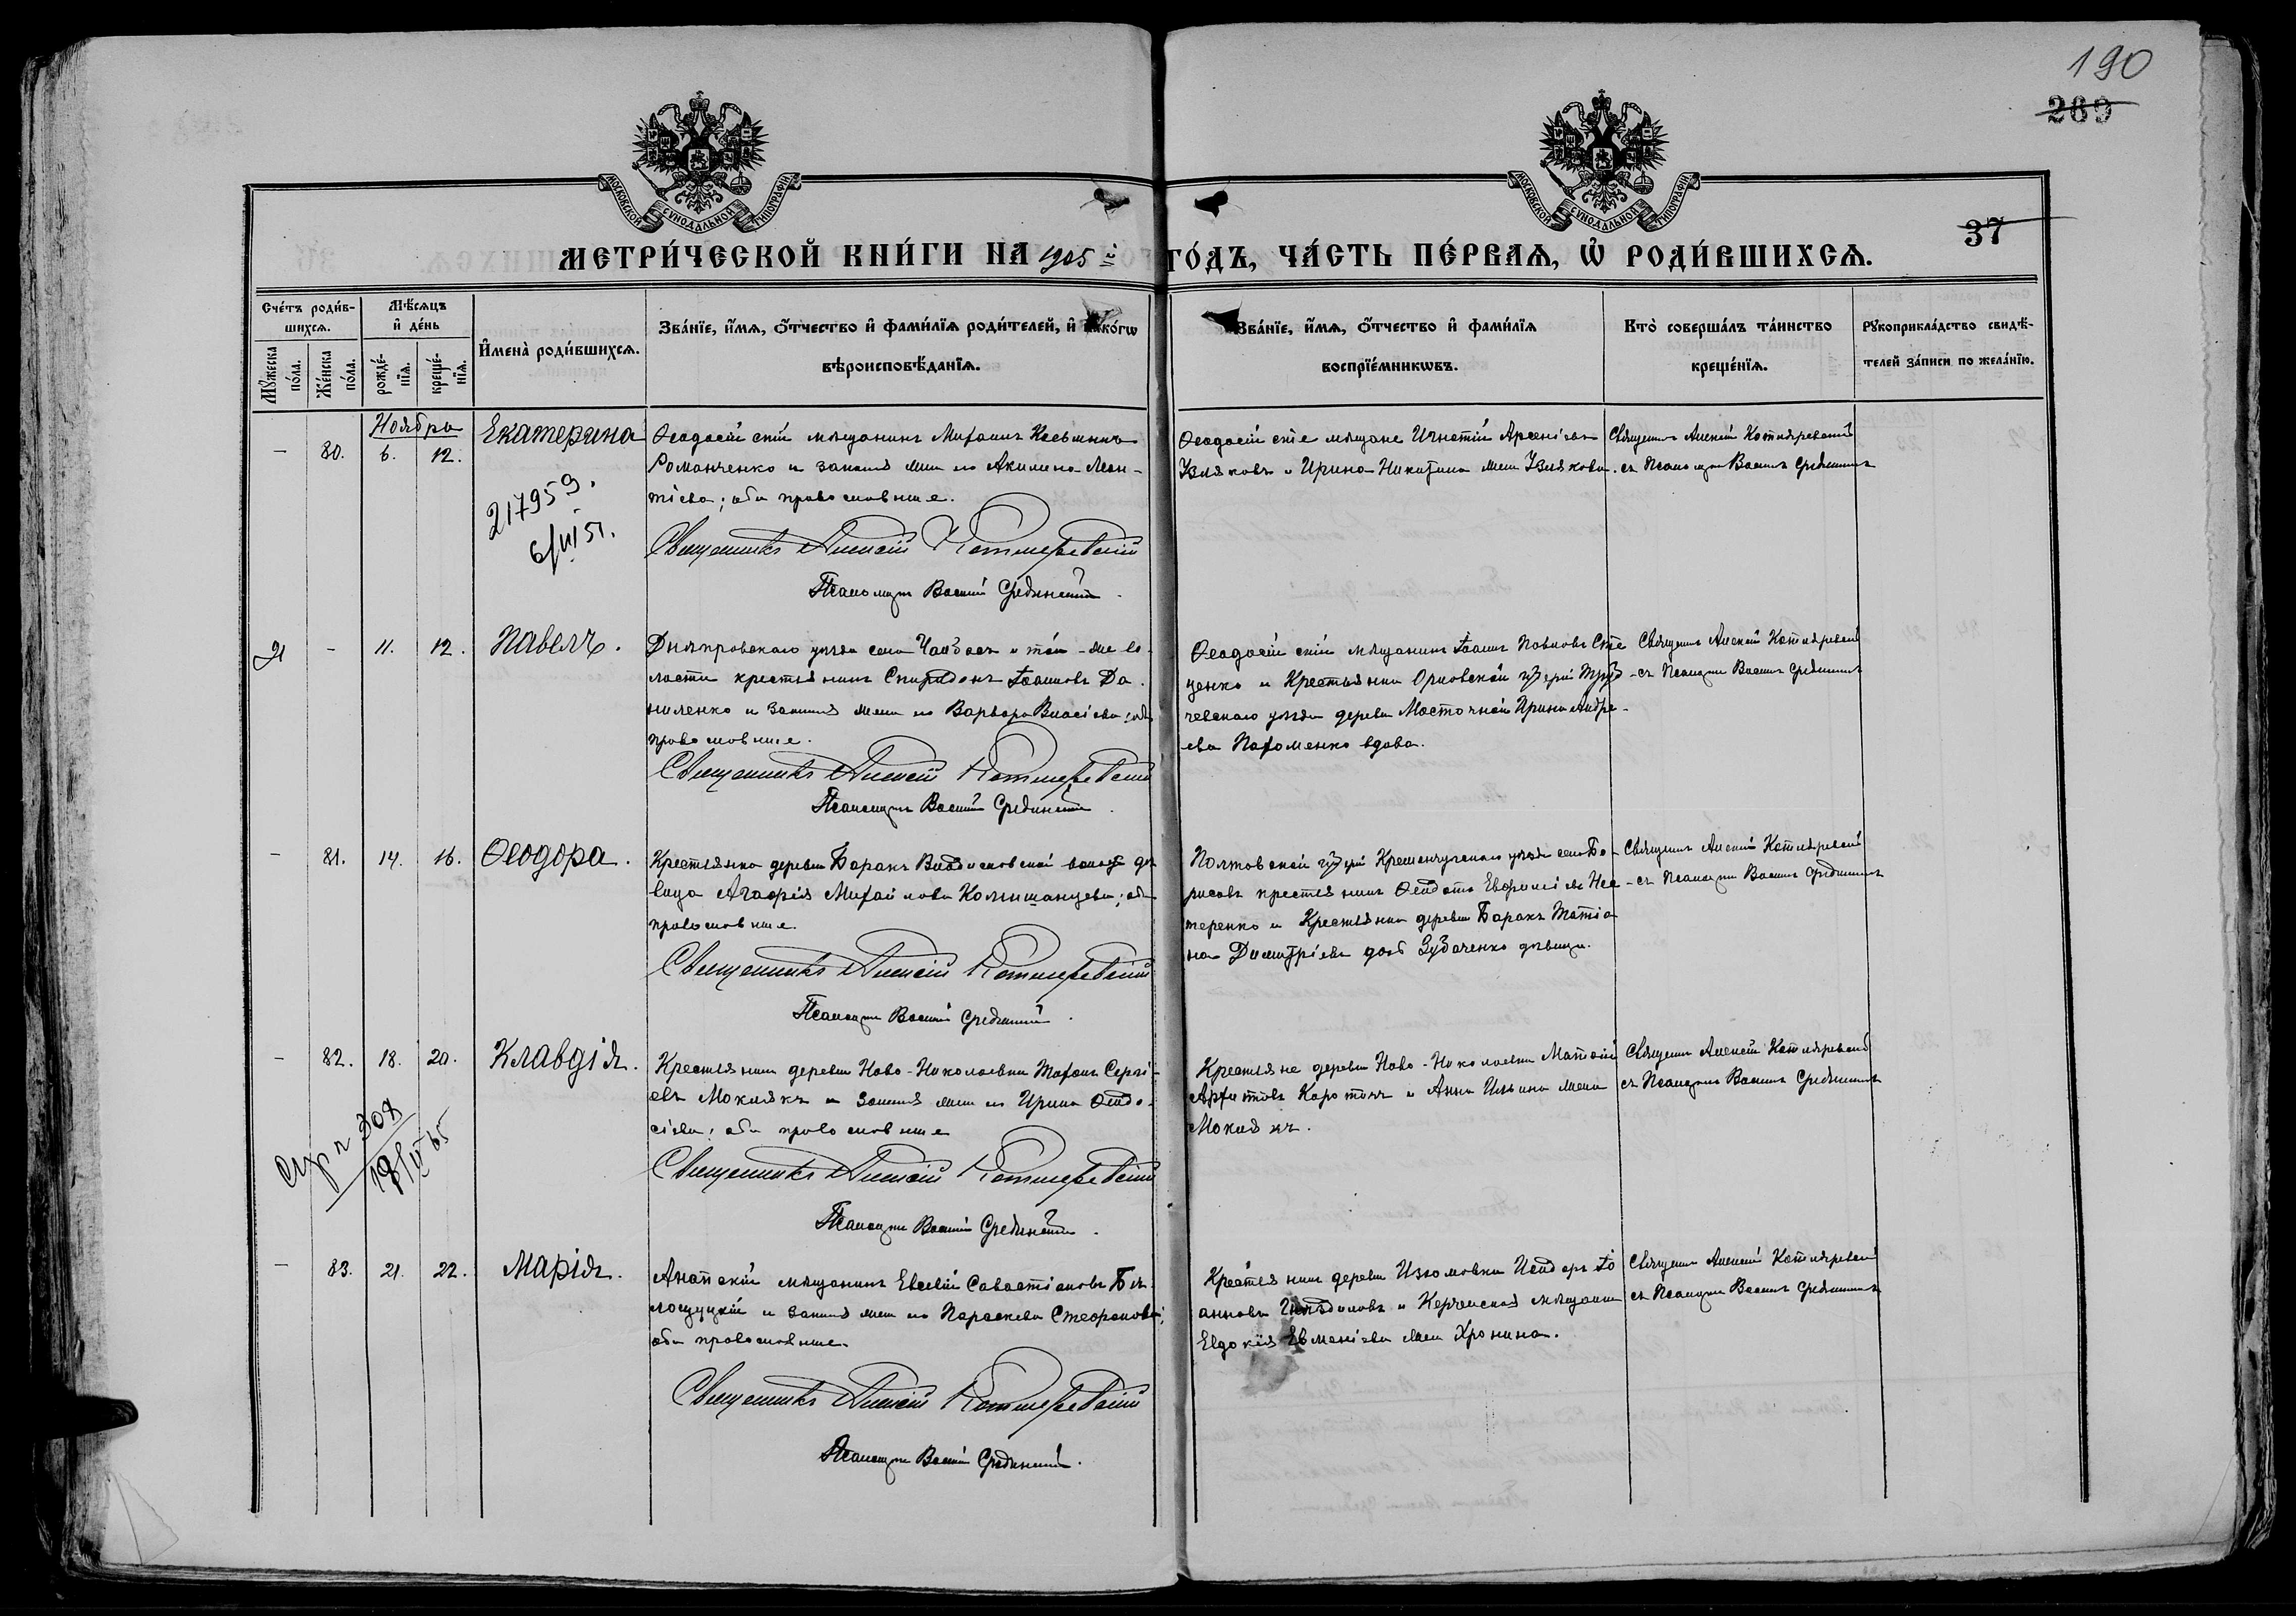 190
269
37
МОСКОВСКОЙ СУНОДАЛЬНОЙ ТИПОГРАФІИ
МОСКОВСКОЙ СУНОДАЛЬНОЙ ТИПОГРАФІИ
МЕТРИ́ЧЕСКОЙ КНИ́ГИ НА 1905 й ГО́ДЪ, ЧА́СТЬ ПЕ́РВАЯ, Ѡ РОДИ́ВШИХСЯ.
Сче́тъ роди́в-
шихся.
Мѣ́сяцъ
и де́нь
Мꙋжеска по́ла.
Же́нска по́ла.
рожде́-нїя.
креще́-нїя.
Имена̀ роди́вшихся.
Зва́нїе, и́мя, о́тчество и фами́лїя роди́телей, и како́гѡ
вѣроисповѣ́данїя.
Зва́нїе, и́мя, о́тчество и фами́лїя
воспрїе́мникѡвъ.
Кто̀ соверша́лъ та́инство
креще́нїя.
Рꙋкоприкла́дство свидѣ́-
телей за́писи по жела́нїю.
Ноябрь
– 80. 6. 12. Екатерина
Ѳеодосійскій мѣщанинъ Михаилъ Косьминъ
Романченко и законная жена его Акилина Леон-
тіева; оба православные.
Священникъ Алексій Котляревскій
Псаломщикъ Василій Срединскій
Ѳеодосійскіе мѣщане Игнатій Арсеніевъ
Изляковъ и Ирина Никитина жена Излякова.
Священникъ Алексій Котляревскій
съ Псаломщик Василіемъ Срединскимъ
217959.
6/VI 51.
21 – 11. 12. Павелъ.
Днѣпровскаго уѣзда села Чалбасъ и той-же во-
лости крестьянинъ Спиридонъ Іоанновъ Да-
ниленко и законная жена его Варвара Власіева; оба
православные.
Священникъ Алексій Котляревскій
Псаломщикъ Василій Срединскій
Ѳеодосійскій мѣщанинъ Іоаннъ Павловъ Сте-
ценко и Крестьянка Орловской губерніи Труб-
чевскаго уѣзда деревни Мосточной Ирина Андре-
ева Пахоменко вдова.
Священникъ Алексій Котляревскій
съ Псаломщик Василіемъ Срединскимъ
– 81. 14. 16. Ѳеодора.
Крестьянка деревни Баракъ Владиславской волости дѣ-
вица Агафія Михайлова Колышанцева;
православные.
Священникъ Алексій Котляревскій
Псаломщикъ Василій Срединскій
Полтавской губерніи Кременчугскаго уѣзда села Бо-
рисовъ крестьянинъ Ѳеодотъ Евфиміевъ Нес-
теренко и Крестьянка деревни Баракъ Татіа-
на Димитріева Зубаченко дѣвица.
Священникъ Алексій Котляревскій
съ Псаломщик Василіемъ Срединскимъ
– 82. 18. 20. Клавдія.
Крестьянинъ деревни Ново-Николаевки Сергі-
евъ Моклякъ и законная жена его Ирина Ѳеодо-
сіева; оба православные
Священникъ Алексій Котляревскій
Псаломщикъ Василій Срединскій
Крестьяне деревни Ново-Николаевки Матѳій
Коротичъ и Анна Ильина жена
Моклякъ.
Священникъ Алексій Котляревскій
съ Псаломщик Василіемъ Срединскимъ
308
18/IV 65
– 83. 21. 22. Марія.
Анапскій мѣщанинъ Евсевій Савастіановъ Бѣ-
лощуцкій и законная жена его Параскева Стефанова;
оба православные.
Священникъ Алексій Котляревскій
Псаломщикъ Василій Срединскій.
Крестьянинъ деревни Изюмовки Исидоръ Іо-
анновъ и Керченская мѣщанка
Евдокія Евменіева жена Хронина.
Священникъ Алексій Котляревскій
съ Псаломщик Василіемъ Срединскимъ